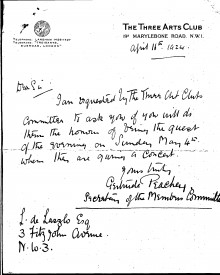 THE THREE ARTS CLUB
19A MARYLEBONE ROAD. N.W.1.
TELEPHONE, LANGHAM
TELEGRAMS,
LONDON
April 11th 1924.
Dear Sir
I am requested by the Three Art Club
Committee to ask you if you will do
them the honour of being the guest
of the evening on Sunday May 4th
when they are giving a Concert.
Yours truly
Gertrude Peachey
Secretary of the Members Committee
L. de Laszlo Esq
3 Fitzjohn Avenue.
N.W.3.